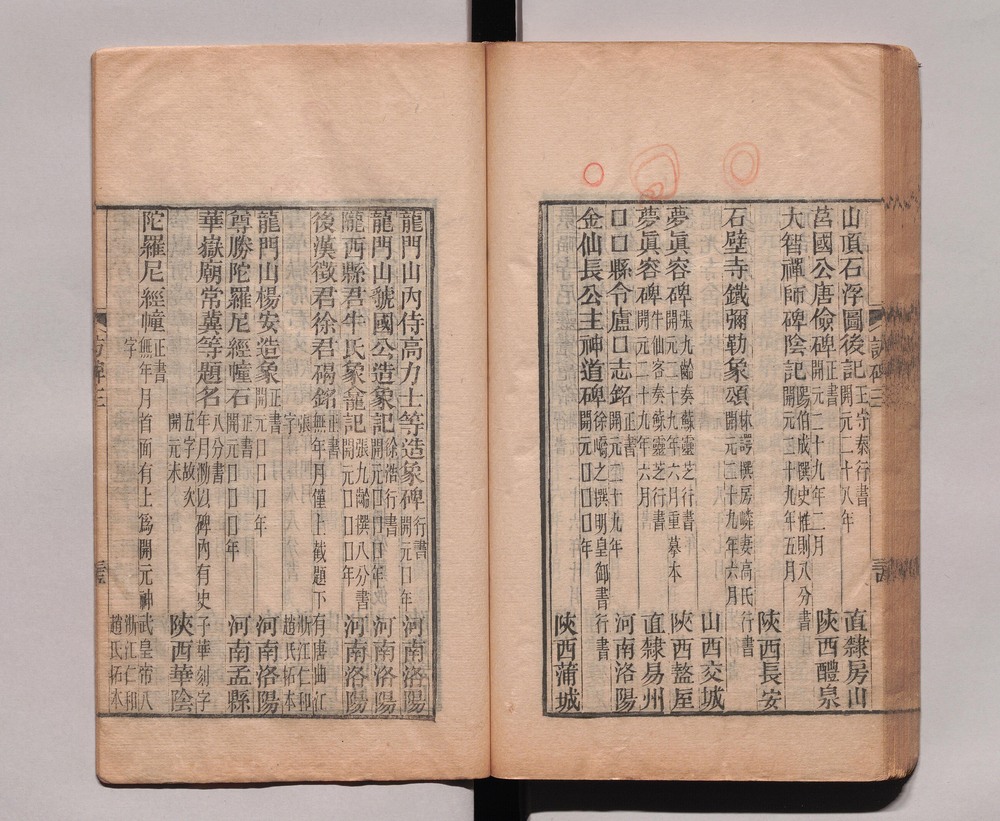 山頂石浮圖後記 王守泰行書 開元二十八年 直隸房山
莒國公唐儉碑 正書 開元二十九年二月 陝西醴泉
大智禪師碑陰記 陽伯成撰史惟則八分書 開元二十九年五月 陝西長安
石壁寺鐵彌勒象頌 林諤撰房嶙妻高氏行書 開元二十九年六月 山西交城
夢眞容碑 張九齡奏蘇靈芝行書 開元二十九年六月重摹本 陝西盩厔
夢眞容碑 牛仙客奏蘇靈芝行書 開元二十九年六月 直隸易州
口口縣令盧口志銘 正書 開元二十九年 河南洛陽
金仙長公主神道碑 徐嶠之撰明皇御書行書 開元口口口年 陝西蒲城
訪碑三
龍門山內侍高力士等造象碑 行書 開元口年 河南洛陽
龍門山虢國公造象記 徐浩行書 開元口口口年 河南洛陽
隴西縣君牛氏象龕記 張九齡撰八分書 開元口口口年 河南洛陽
後漢徵君徐君碣銘 正書 無年月僅上截題下有唐曲江張字 浙江仁和趙氏拓本
龍門山楊安造象 正書 開元口口口年 河南洛陽
尊勝陀羅尼經幢石 正書 開元口口口年 河南孟縣
華嶽廟常冀等題名 八分書 年月泐以碑內有史子華刻字五字故次開元末 陝西華陰
陀羅尼經幢 正書 無年月首面有上爲開元神武皇帝八字 浙江仁和趙氏拓本
訪碑三